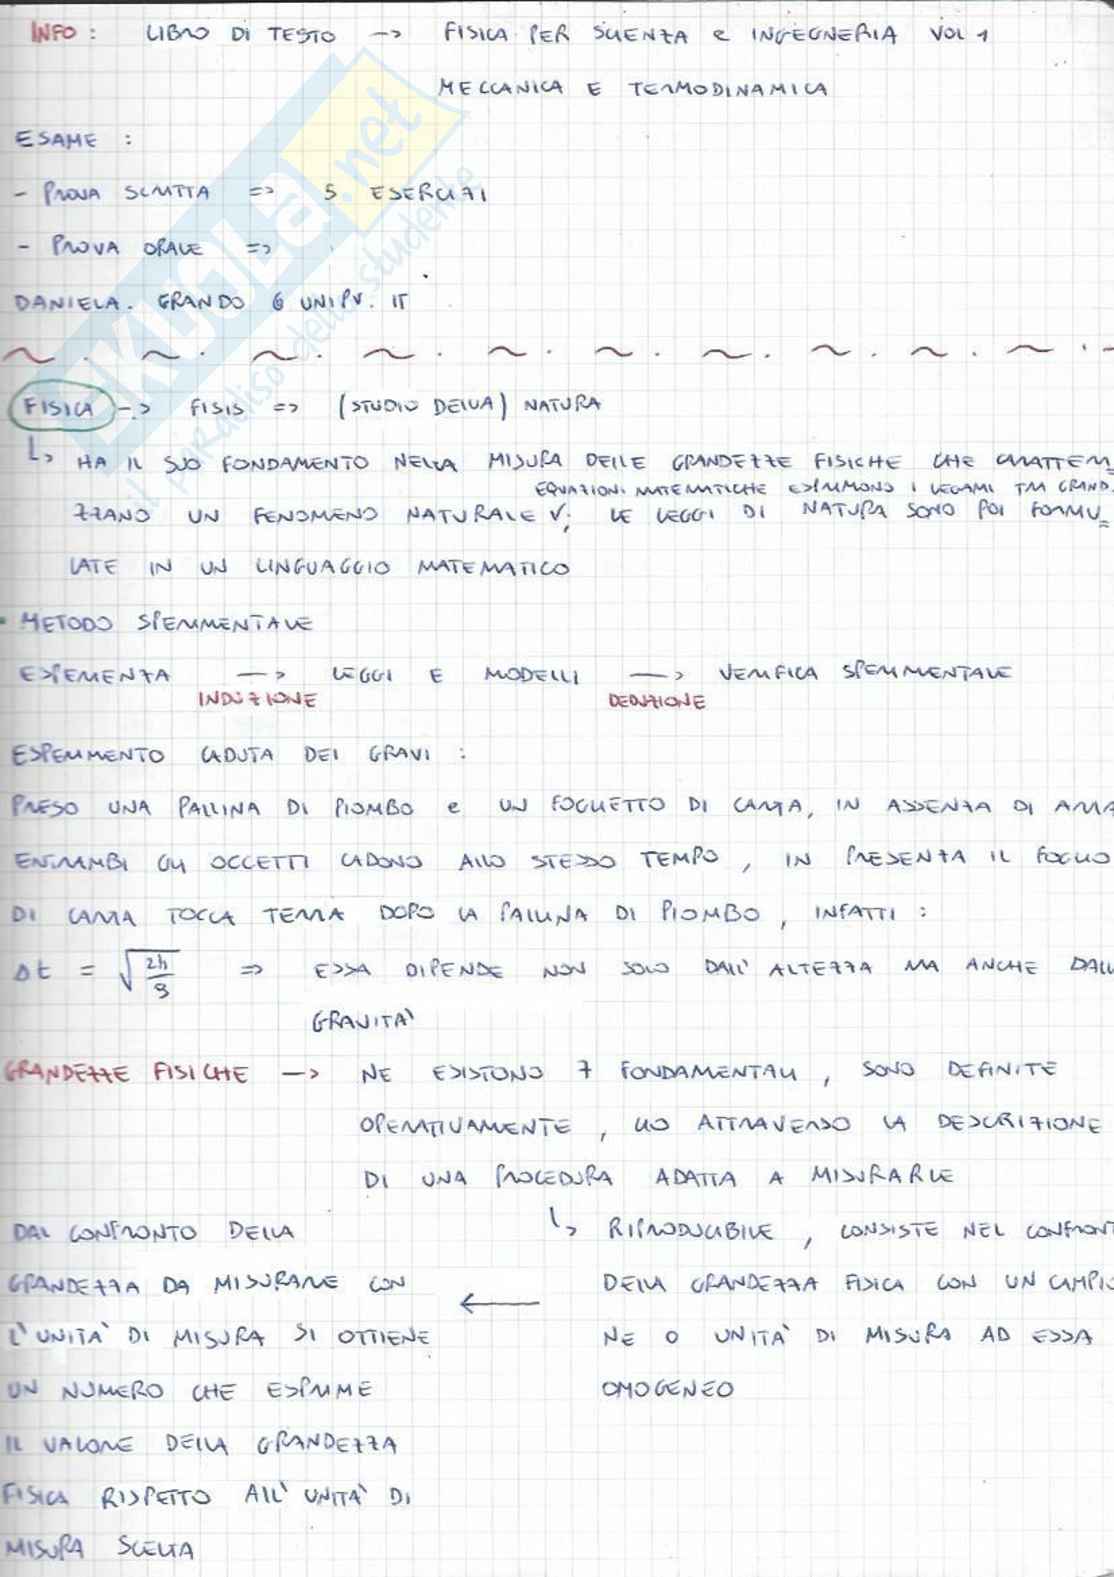 INFO: LIBRO DI TESTO -> FISICA PER SCIENZA e INGEGNERIA VOL 1
MECCANICA E TERMODINAMICA
ESAME :
- PROVA SCRITTA => 5 ESERCIZI
- PROVA ORALE =>
DANIELA. GRANDO @ UNIPV. IT
SKUOLA.net
il paradiso dello studente
FISICA -> FISIS => (STUDIO DELLA) NATURA
↳ HA IL SUO FONDAMENTO NELLA MISURA DELLE GRANDEZZE FISICHE CHE CARATTERI=
EQUAZIONI MATEMATICHE ESPRIMONO I LEGAMI TRA GRAND.
ZZANO UN FENOMENO NATURALE V; LE LEGGI DI NATURA SONO POI FORMU=
LATE IN UN LINGUAGGIO MATEMATICO
• METODO SPERIMENTALE
ESPERIENZA -> LEGGI E MODELLI -> VERIFICA SPERIMENTALE
INDUZIONE DEDUZIONE
ESPERIMENTO CADUTA DEI GRAVI :
PRESO UNA PALLINA DI PIOMBO e UN FOGLIETTO DI CARTA, IN ASSENZA DI ARIA
ENTRAMBI GLI OGGETTI CADONO ALLO STESSO TEMPO, IN PRESENZA IL FOGLIO
DI CARTA TOCCA TERRA DOPO LA PALLINA DI PIOMBO, INFATTI :
Δt = √(2h/g) => ESSA DIPENDE NON SOLO DALL'ALTEZZA MA ANCHE DALLA
GRAVITA'
GRANDEZZE FISICHE -> NE ESISTONO 7 FONDAMENTALI, SONO DEFINITE
OPERATIVAMENTE, CIO ATTRAVERSO LA DESCRIZIONE
DI UNA PROCEDURA ADATTA A MISURARLE
↳ RIPRODUCIBILE, CONSISTE NEL CONFRONT
DELLA GRANDEZZA FISICA CON UN CAMPIO
NE O UNITA' DI MISURA AD ESSA
OMOGENEO
DAL CONFRONTO DELLA
GRANDEZZA DA MISURARE CON
L'UNITA' DI MISURA SI OTTIENE
UN NUMERO CHE ESPRIME
IL VALORE DELLA GRANDEZZA
FISICA RISPETTO ALL'UNITA' DI
MISURA SCELTA